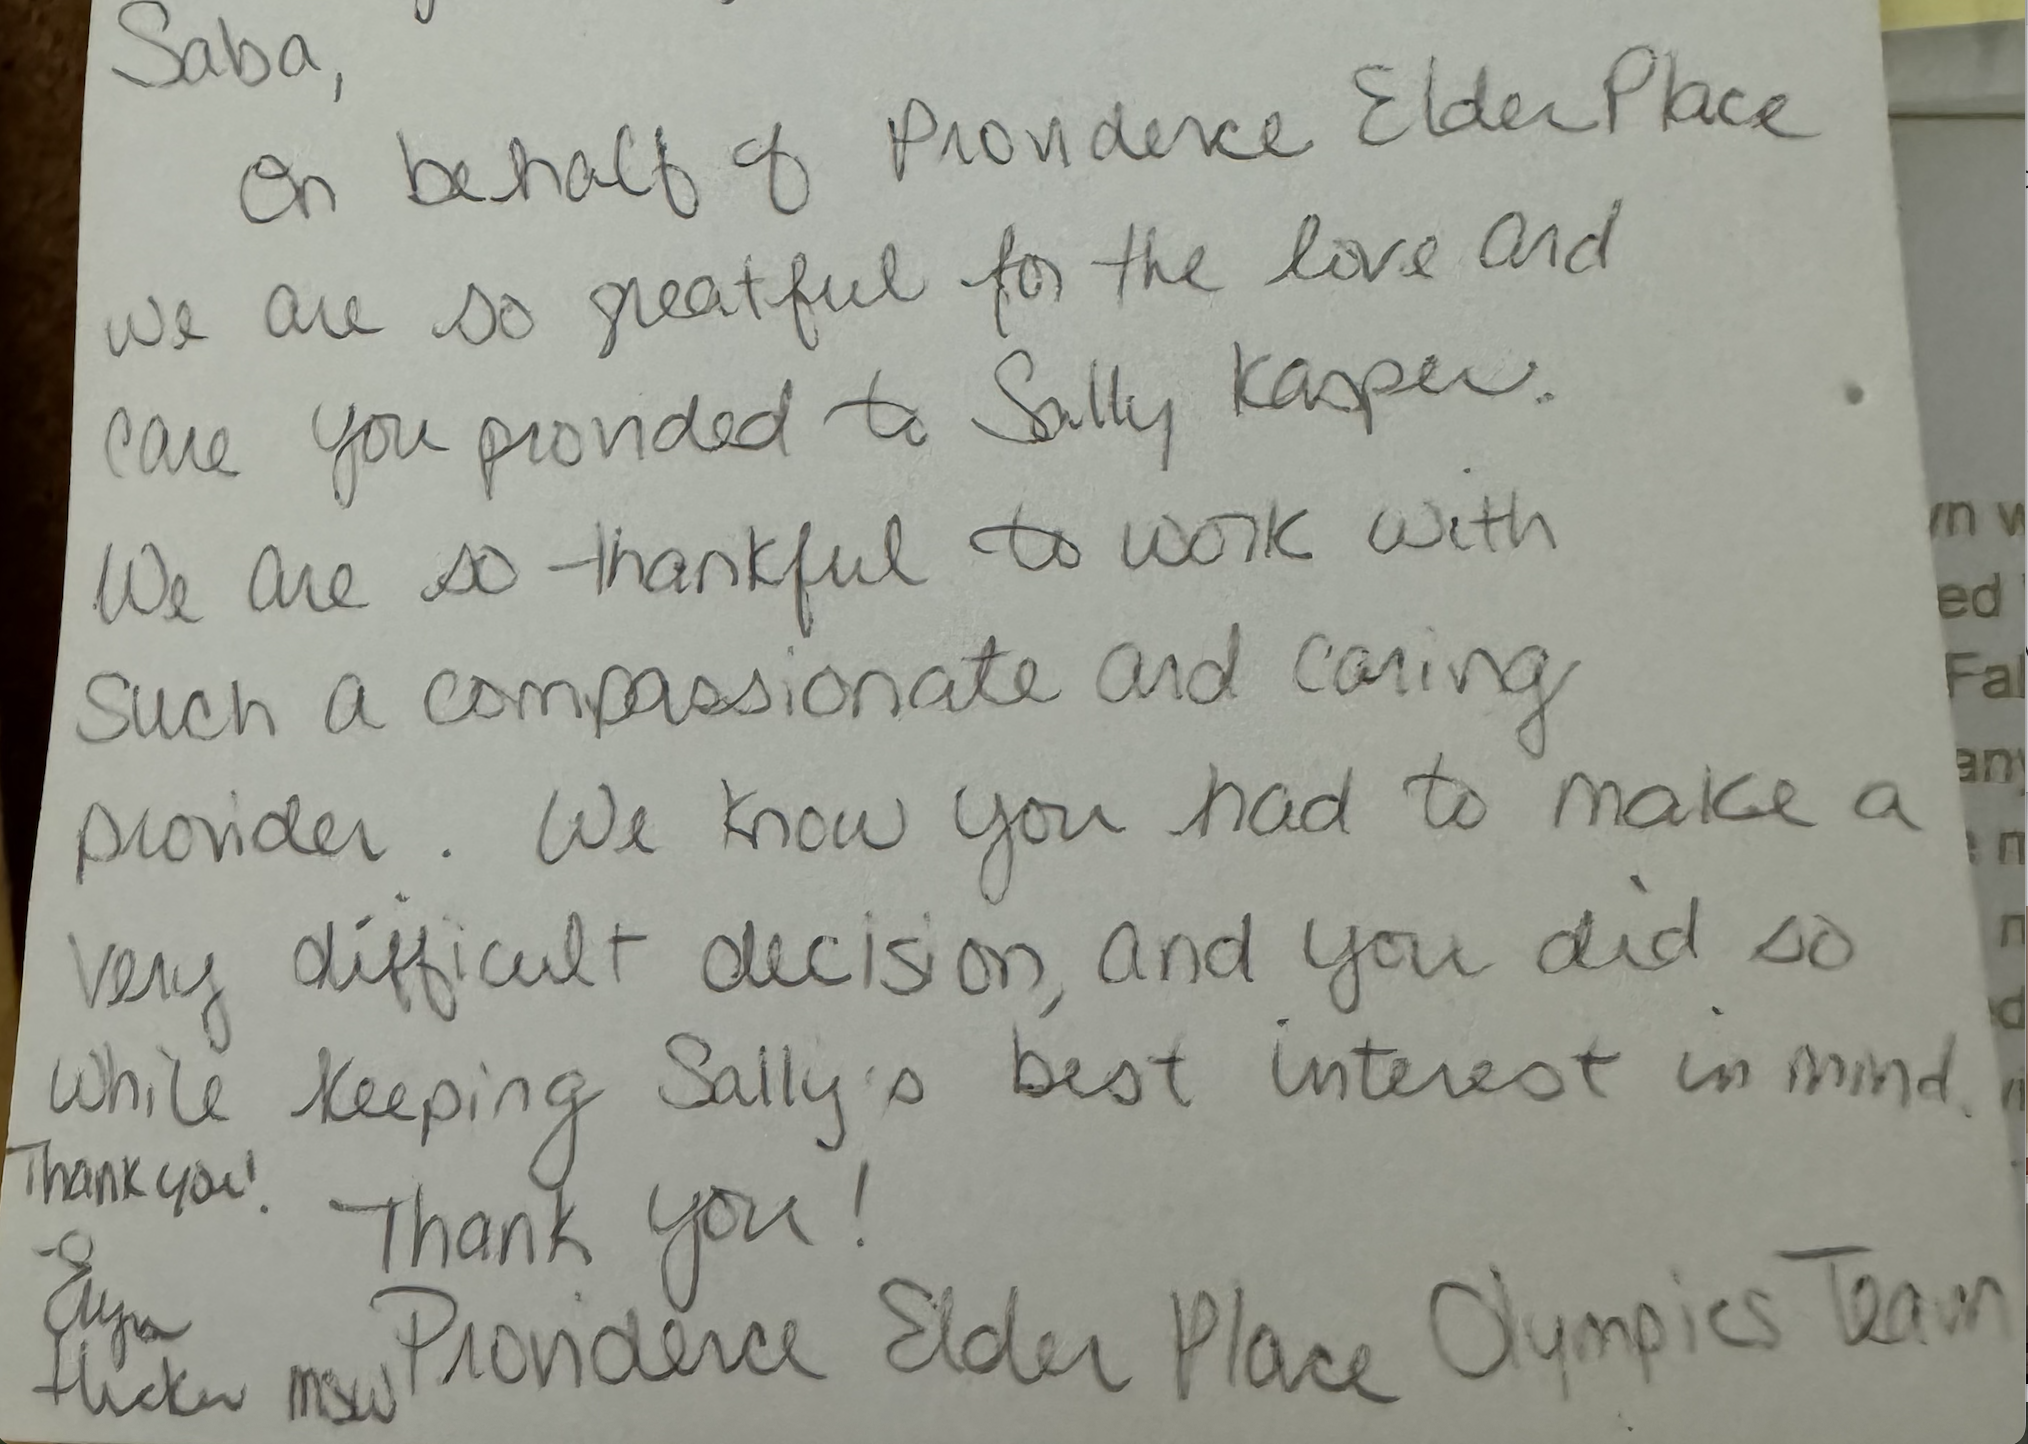 Saba,
On behalf of Providence Elder Place
we are so greatful for the love and
care you provided to Sally Kasper.
We are so thankful to work with
such a compassionate and caring
provider. We know you had to make a
very difficult decision, and you did so
while keeping Sally's best interest in mind.
Thank you!
Providence Elder Place Olympics Team
Thank you!
MSW
ed